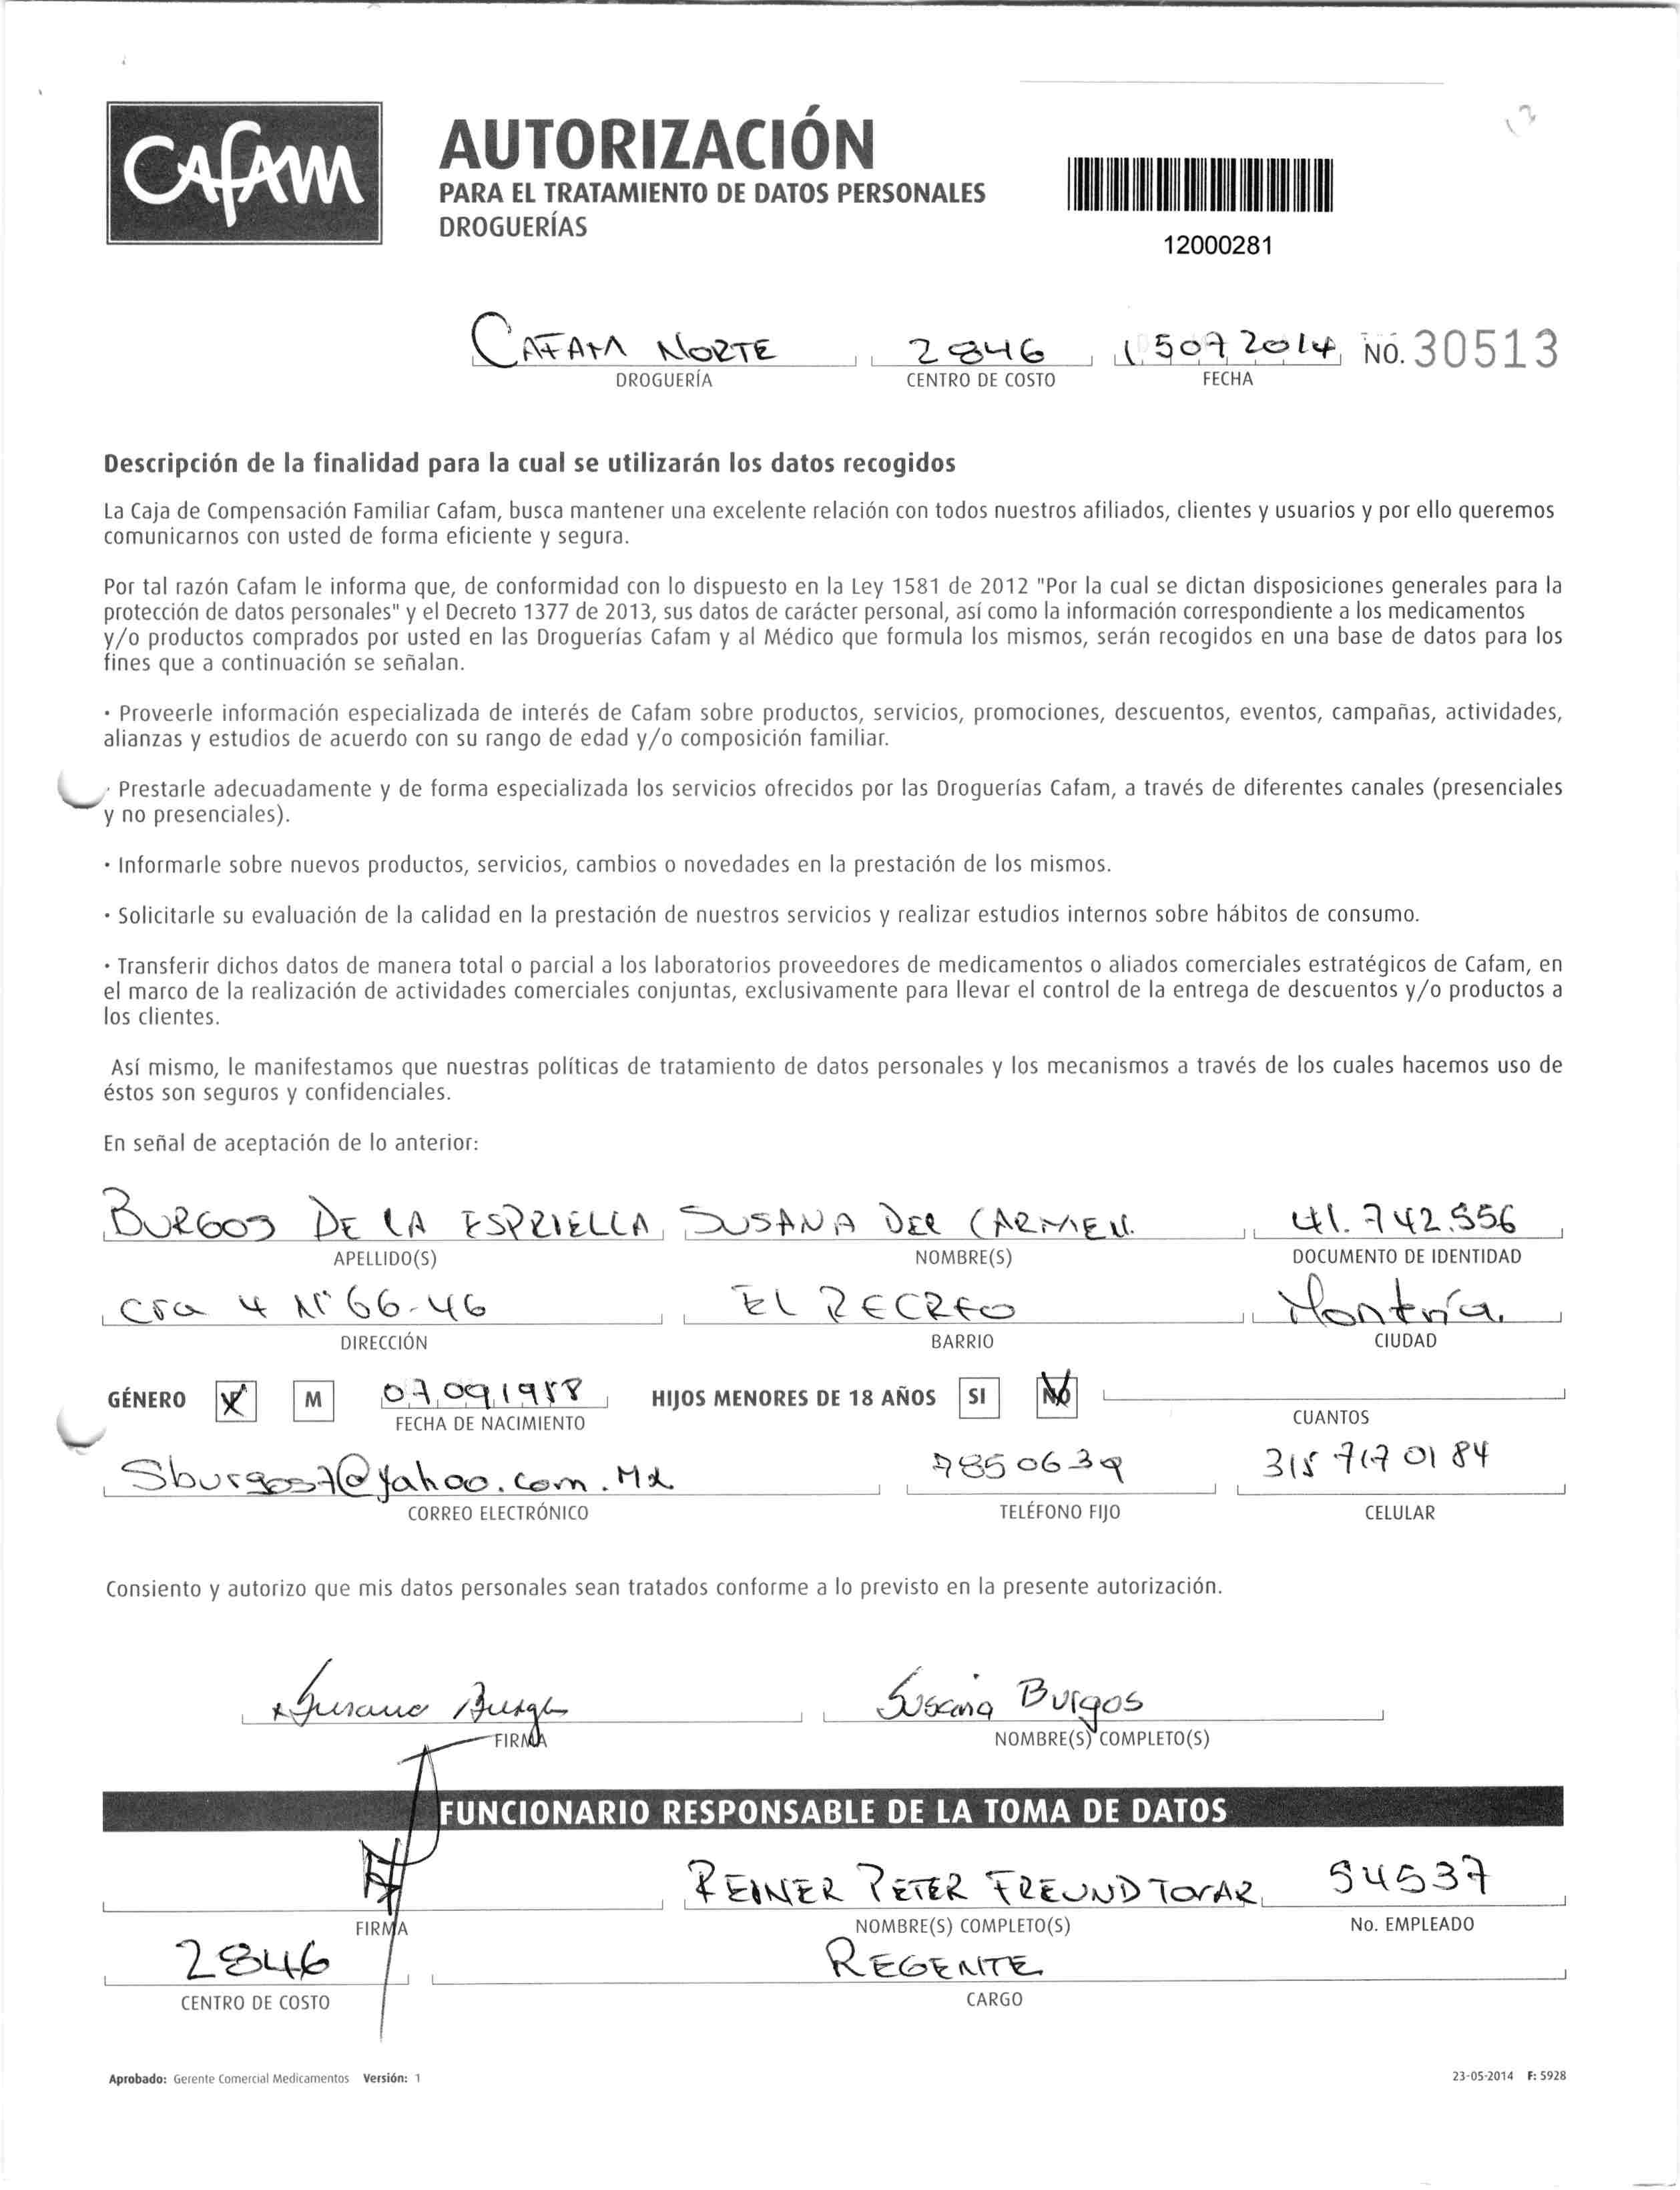 Cafam
AUTORIZACIÓN
PARA EL TRATAMIENTO DE DATOS PERSONALES
DROGUERÍAS
12000281
CAFAM NORTE 2846 15072014 NO. 30513
DROGUERÍA CENTRO DE COSTO FECHA
Descripción de la finalidad para la cual se utilizarán los datos recogidos
La Caja de Compensación Familiar Cafam, busca mantener una excelente relación con todos nuestros afiliados, clientes y usuarios y por ello queremos
comunicarnos con usted de forma eficiente y segura.
Por tal razón Cafam le informa que, de conformidad con lo dispuesto en la Ley 1581 de 2012 "Por la cual se dictan disposiciones generales para la
protección de datos personales" y el Decreto 1377 de 2013, sus datos de carácter personal, así como la información correspondiente a los medicamentos
y/o productos comprados por usted en las Droguerías Cafam y al Médico que formula los mismos, serán recogidos en una base de datos para los
fines que a continuación se señalan.
· Proveerle información especializada de interés de Cafam sobre productos, servicios, promociones, descuentos, eventos, campañas, actividades,
alianzas y estudios de acuerdo con su rango de edad y/o composición familiar.
· Prestarle adecuadamente y de forma especializada los servicios ofrecidos por las Droguerías Cafam, a través de diferentes canales (presenciales
y no presenciales).
· Informarle sobre nuevos productos, servicios, cambios o novedades en la prestación de los mismos.
· Solicitarle su evaluación de la calidad en la prestación de nuestros servicios y realizar estudios internos sobre hábitos de consumo.
· Transferir dichos datos de manera total o parcial a los laboratorios proveedores de medicamentos o aliados comerciales estratégicos de Cafam, en
el marco de la realización de actividades comerciales conjuntas, exclusivamente para llevar el control de la entrega de descuentos y/o productos a
los clientes.
Así mismo, le manifestamos que nuestras políticas de tratamiento de datos personales y los mecanismos a través de los cuales hacemos uso de
éstos son seguros y confidenciales.
En señal de aceptación de lo anterior:
BURGOS DE LA ESPRIELLA SUSANA DEL CARMEN. 41.742.556
APELLIDO(S) NOMBRE(S) DOCUMENTO DE IDENTIDAD
Cra 4 N° 66-46 EL RECREO Montría.
DIRECCIÓN BARRIO CIUDAD
GÉNERO X M 07091958 HIJOS MENORES DE 18 AÑOS SI NO
FECHA DE NACIMIENTO CUANTOS
Sburgos7@yahoo.com.Mx 7850639 315 7170184
CORREO ELECTRÓNICO TELÉFONO FIJO CELULAR
Consiento y autorizo que mis datos personales sean tratados conforme a lo previsto en la presente autorización.
x Susana Burgos Susana Burgos
FIRMA NOMBRE(S) COMPLETO(S)
FUNCIONARIO RESPONSABLE DE LA TOMA DE DATOS
REINER PETER FREUND TOVAR 54537
FIRMA NOMBRE(S) COMPLETO(S) No. EMPLEADO
2846 REGENTE
CENTRO DE COSTO CARGO
Aprobado: Gerente Comercial Medicamentos Versión: 1 23-05-2014 F: 5928